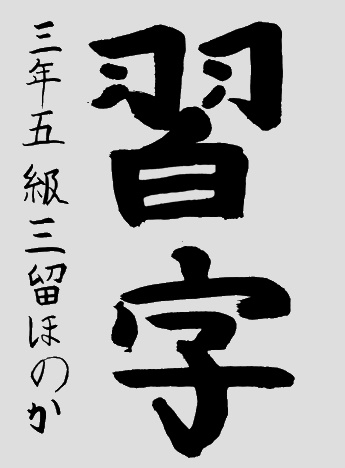 習字
三年五級三留ほのか